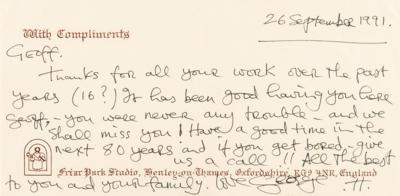 26 September 1991.
With Compliments
Geoff.
Thanks for all your work over the past
years (16?) It has been good having you here
Geoff, - you were never any trouble - and we
shall miss you! Have a good time in the
next 80 years and if you get bored - give
us a call!!! All the best
Friar Park Studio, Henley-on-Thames, Oxfordshire, RG9 4NR, England
to you and your family. Love